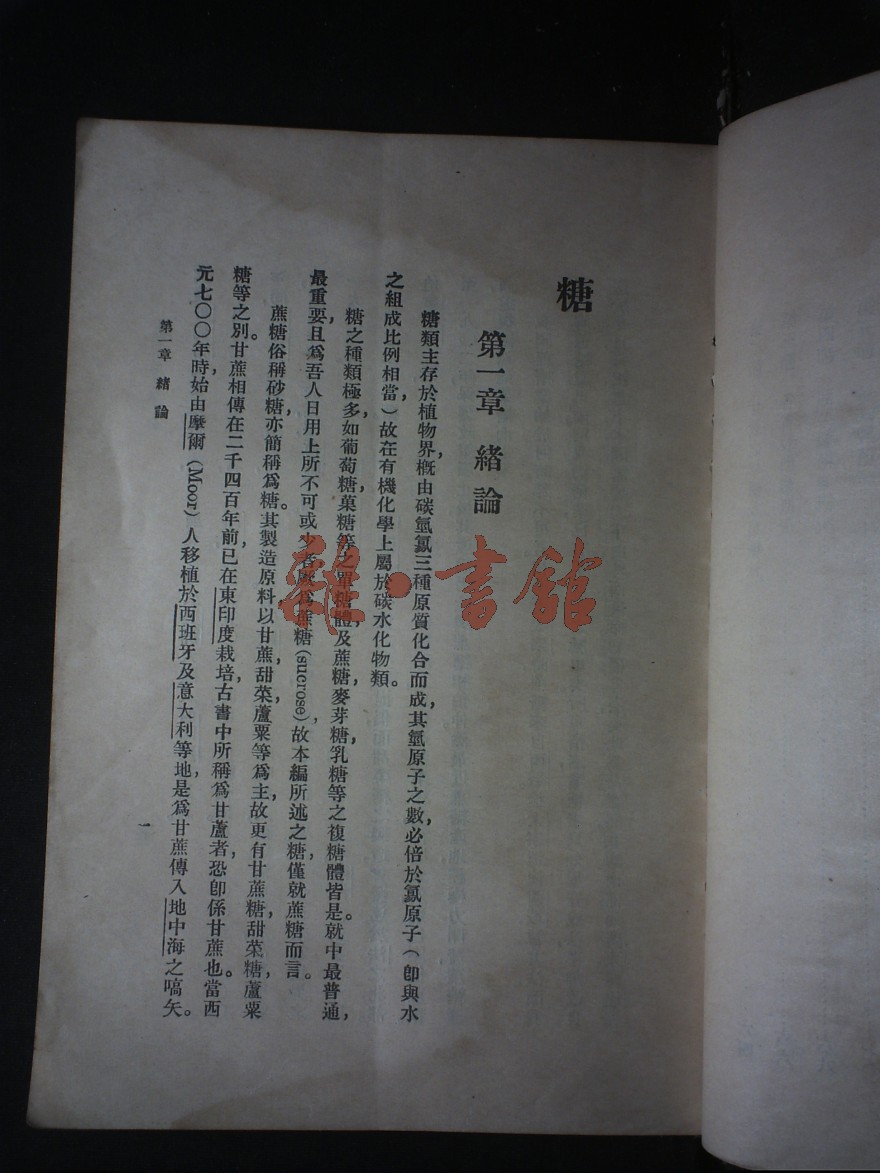 糖
第一章 緒論
糖類主存於植物界，概由碳氫氧三種原質化合而成，其氫原子之數，必倍於氧原子（卽與水
之組成比例相當，）故在有機化學上屬於碳水化物類。
糖之種類極多，如葡萄糖，菓糖等之單糖體，及蔗糖，麥芽糖，乳糖等之複糖體皆是。就中最普通，
最重要，且爲吾人日用上所不可或少者，厥爲蔗糖(sucrose)，故本編所述之糖，僅就蔗糖而言。
蔗糖俗稱砂糖，亦簡稱爲糖。其製造原料，以甘蔗，甜菜，蘆粟等爲主，故更有甘蔗糖，甜菜糖，蘆粟
糖等之別。甘蔗相傳在二千四百年前，已在東印度栽培，古書中所稱爲甘蘆者，恐卽係甘蔗也。當西
元七〇〇年時，始由摩爾（Moor）人移植於西班牙及意大利等地，是爲甘蔗傳入地中海之嚆矢。
第一章 緒論
一
雜·書館